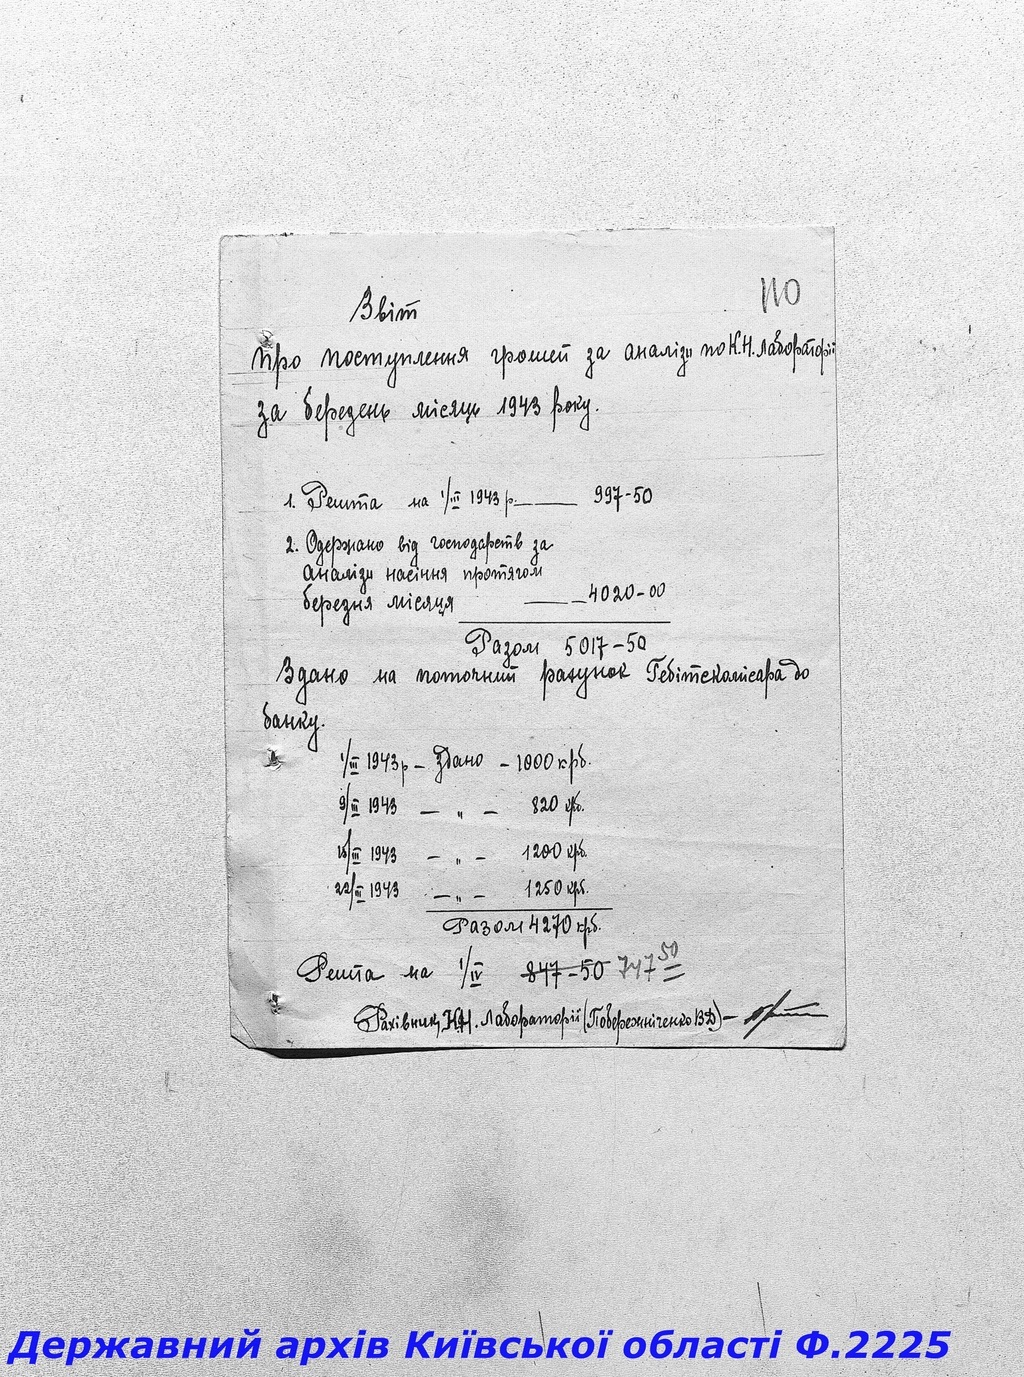 110
Звіт
про поступлення грошей за аналізи по К.Н. Лабораторії
за березень місяць 1943 року.
1. Решта на 1/III 1943 р. ——— 997-50
2. Одержано від господарств за
аналізи насіння протягом
березня місяця ——— 4020-00
Разом 5017-50
Здано на поточний рахунок Гебітскомісара до
банку.
1/III 1943 р – Здано – 1000 крб.
9/III 1943 — „ — 820 крб.
15/III 1943 — „ — 1200 крб.
22/III 1943 — „ — 1250 крб.
Разом 4270 крб.
Решта на 1/IV 847-50 747 50
Рахівник К.Н. Лабораторії (Побережніченко В Д) –
Державний архів Київської області Ф.2225